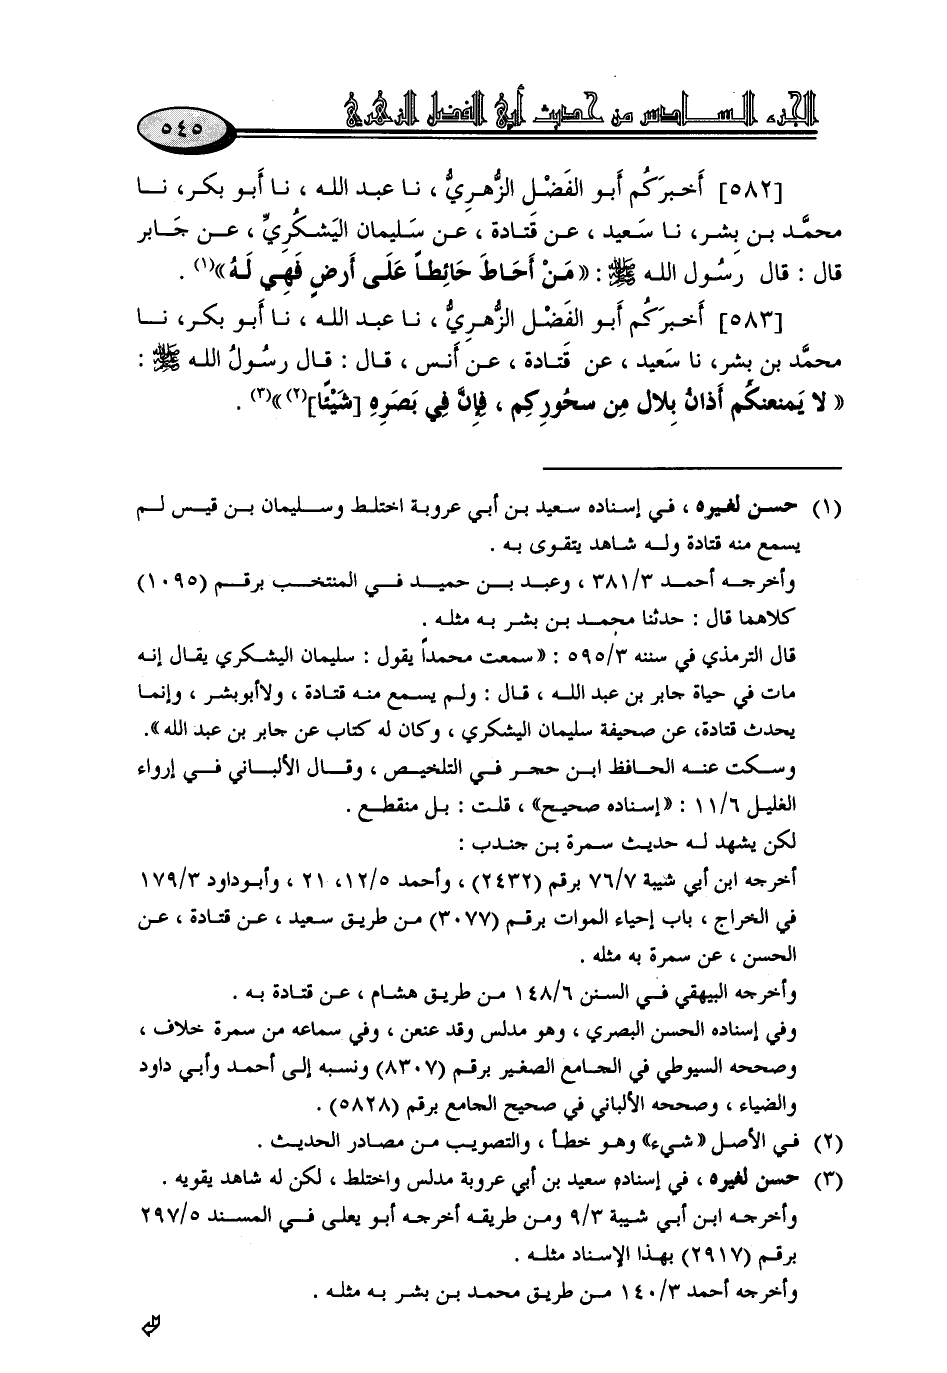 الجزء السادس من حديث أبي الفضل الزهري
٥٤٥
[٥٨٢] أَخبرَكُم أبو الفَضْل الزُّهريُّ ، نا عبد الله ، نا أَبو بكر، نا
محمَّد بن بِشر، نا سَعيد ، عن قَتادة ، عن سَليمان اليَشكُريِّ ، عن جَابر
قال : قال رَسُول الله ﷺ : « مَنْ أَحَاطَ حَائِطاً عَلَى أَرضٍ فَهِي لَهُ»(١) .
[٥٨٣] أَخبرَكُم أبو الفَضْل الزُّهريُّ ، نا عبد الله ، نا أَبو بكر، نا
محمَّد بن بِشر، نا سَعيد ، عن قَتادة ، عن أَنس ، قال : قال رسُولُ الله ﷺ :
« لا يَمنعنكُم أَذانُ بِلال مِن سحُورِكم ، فإنَّ فِي بَصَرِهِ [شَيْئًا](٢)»(٣) .
(١) حسن لغيره ، في إسناده سعيد بن أبي عروبة اختلط وسليمان بن قيس لم
يسمع منه قتادة وله شاهد يتقوى به .
وأخرجه أحمد ٣٨١/٣ ، وعبد بن حميد في المنتخب برقم (١٠٩٥)
كلاهما قال : حدثنا محمد بن بشر به مثله .
قال الترمذي في سننه ٥٩٥/٣ : «سمعت محمداً يقول : سليمان اليشكري يقال إنه
مات في حياة جابر بن عبد الله ، قال : ولم يسمع منه قتادة ، ولاأبوبشر ، وإنما
يحدث قتادة، عن صحيفة سليمان اليشكري ، وكان له كتاب عن جابر بن عبد الله».
وسكت عنه الحافظ ابن حجر في التلخيص ، وقال الألباني في إرواء
الغليل ١١/٦ : «إسناده صحيح» ، قلت : بل منقطع .
لكن يشهد له حديث سمرة بن جندب :
أخرجه ابن أبي شيبة ٧٦/٧ برقم (٢٤٣٢) ، وأحمد ١٢/٥، ٢١ ، وأبوداود ١٧٩/٣
في الخراج ، باب إحياء الموات برقم (٣٠٧٧) من طريق سعيد ، عن قتادة ، عن
الحسن ، عن سمرة به مثله .
وأخرجه البيهقي في السنن ١٤٨/٦ من طريق هشام ، عن قتادة به .
وفي إسناده الحسن البصري ، وهو مدلس وقد عنعن ، وفي سماعه من سمرة خلاف ،
وصححه السيوطي في الجامع الصغير برقم (٨٣٠٧) ونسبه إلى أحمد وأبي داود
والضياء ، وصححه الألباني في صحيح الجامع برقم (٥٨٢٨) .
(٢) في الأصل «شيء» وهو خطأ ، والتصويب من مصادر الحديث .
(٣) حسن لغيره ، في إسناده سعيد بن أبي عروبة مدلس واختلط ، لكن له شاهد يقويه .
وأخرجه ابن أبي شيبة ٩/٣ ومن طريقه أخرجه أبو يعلى في المسند ٢٩٧/٥
برقم (٢٩١٧) بهذا الإسناد مثله .
وأخرجه أحمد ١٤٠/٣ من طريق محمد بن بشر به مثله .